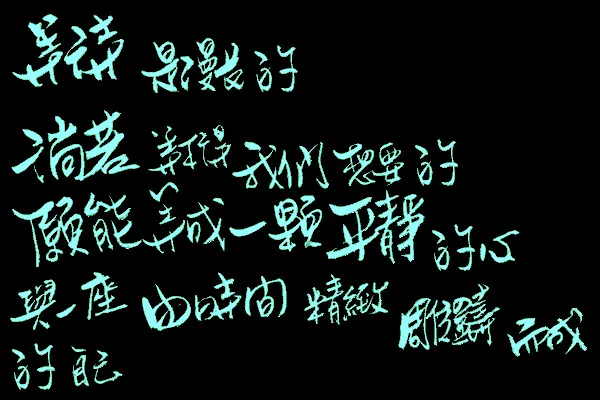 等待 是漫長的
倘若 等不到 我們想要的
願能等成一顆平靜的心
與一座 由時間 精緻 雕鑄 而成
的自己